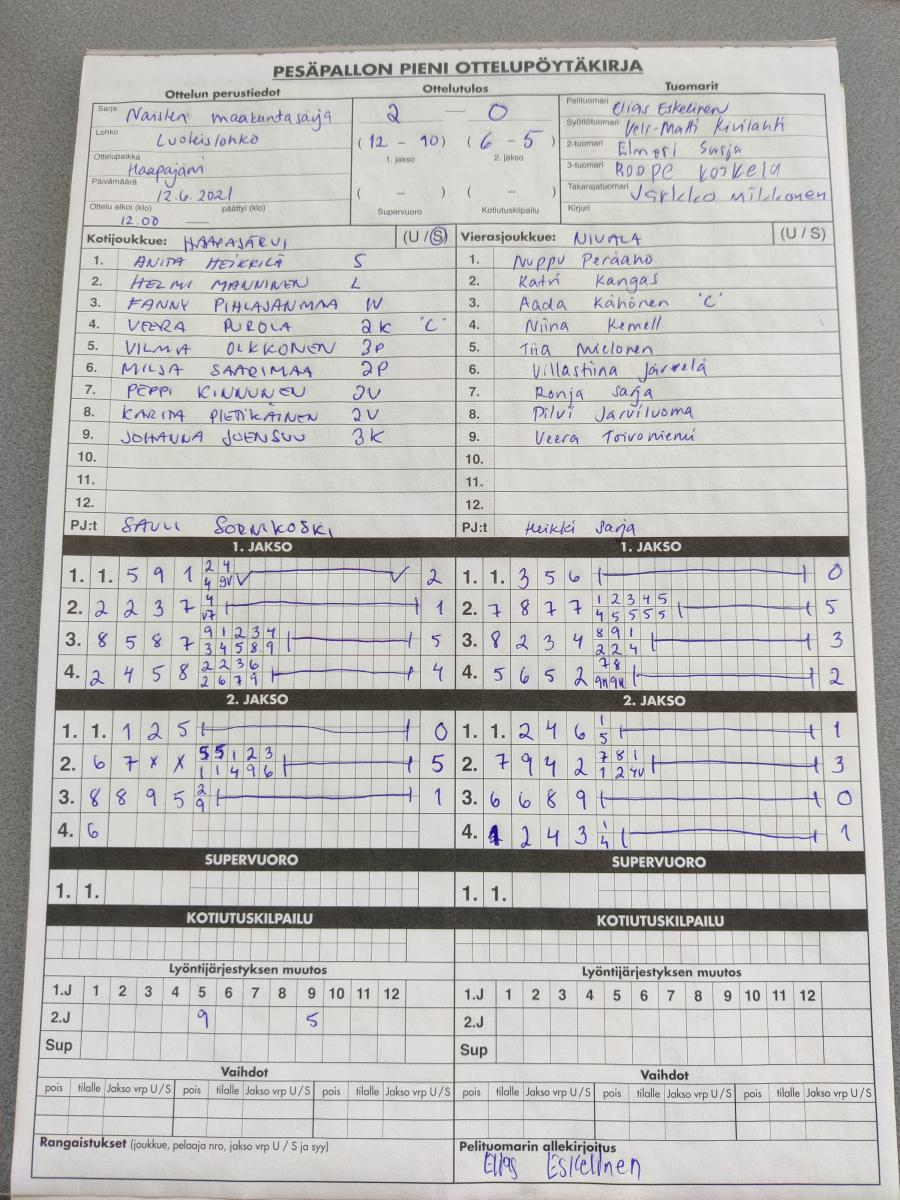 PESÄPALLON PIENI OTTELUPÖYTÄKIRJA
Ottelun perustiedot Ottelutulos Tuomarit
Sarja Naisten maakuntasarja
Lohko Luokeislohko
Ottelupaikka Haapajärvi
Päivämäärä 12.6.2021
Ottelu alkoi (klo) 12.00 — päättyi (klo)
2 — 0
(12 - 10) (6 - 5)
1. jakso 2. jakso
( - ) ( - )
Supervuoro Kotiutuskilpailu
Pelituomari Elias Eskelinen
Syöttötuomari Veli-Matti Kivilahti
2-tuomari Elmeri Sarja
3-tuomari Roope Koskela
Takarajatuomari Jarkko Mikkonen
Kirjuri
Kotijoukkue: HAAPAJÄRVI (U / S)
1. ANITA HEIKKILÄ S
2. HELMI MANNINEN L
3. FANNY PIHLAJANMAA IV
4. VEERA PUROLA 2K "C"
5. VILMA OLKKONEN 3P
6. MILJA SAARIMAA 2P
7. PEPPI KINNUNEN 3V
8. KARITA PIETIKÄINEN 2V
9. JOHANNA JOENSUU 3K
10.
11.
12.
PJ:t SAULI SORNIKOSKI
Vierasjoukkue: NIVALA (U / S)
1. Nuppu Peräaho
2. Katri Kangas
3. Aada Kähönen "C"
4. Niina Kemell
5. Tiia Mielonen
6. Villastiina Järvelä
7. Ronja Sarja
8. Pilvi Järviluoma
9. Veera Toivoniemi
10.
11.
12.
PJ:t Heikki Sarja
1. JAKSO
1. 1. 5 9 1 2 4 2
4 9V
2. 2 2 3 7 4 1
V7
3. 8 5 8 7 9 1 2 3 4 5
3 4 5 8 9
4. 2 4 5 8 2 2 3 6 4
2 6 7 9
1. JAKSO
1. 1. 3 5 6 0
2. 7 8 7 7 1 2 3 4 5 5
4 5 5 5 5
3. 8 2 3 4 8 9 1 3
2 2 4
4. 5 6 5 2 7 8 2
9K 9K
2. JAKSO
1. 1. 1 2 5 0
2. 6 7 x x 5 5 1 2 3 5
1 1 4 9 6
3. 8 8 9 5 2 1
9
4. 6
2. JAKSO
1. 1. 2 4 6 1 1
5
2. 7 9 4 2 7 8 1 3
1 2 4V
3. 6 6 8 9 0
4. 1 2 4 3 1 1
4
SUPERVUORO
1. 1.
SUPERVUORO
1. 1.
KOTIUTUSKILPAILU
KOTIUTUSKILPAILU
Lyöntijärjestyksen muutos
1.J 1 2 3 4 5 6 7 8 9 10 11 12
2.J 9 5
Sup
Lyöntijärjestyksen muutos
1.J 1 2 3 4 5 6 7 8 9 10 11 12
2.J
Sup
Vaihdot
pois tilalle Jakso vrp U / S pois tilalle Jakso vrp U / S pois tilalle Jakso vrp U / S
Vaihdot
pois tilalle Jakso vrp U / S pois tilalle Jakso vrp U / S pois tilalle Jakso vrp U / S
Rangaistukset (joukkue, pelaaja nro, jakso vrp U / S ja syy)
Pelituomarin allekirjoitus
Elias Eskelinen